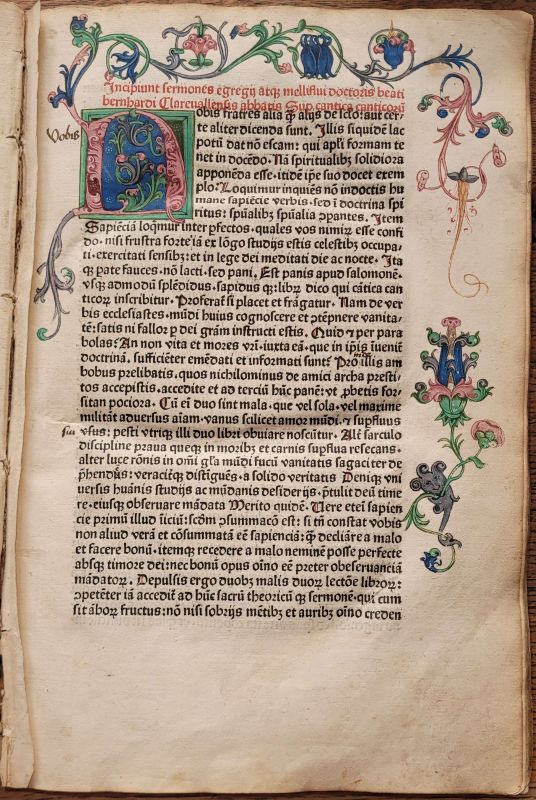 Incipiunt sermones egregij atqꝫ melliflui doctoris beati
bernhardi Clareuallensis abbatis Sup. cantica canticoꝝ
Vobis
obis fratres alia q̄ alijs de sc̄lo: aut cer-
te aliter dicenda sunt. Illis siquidem lac
potū dat nō escam: qui apl̓i formam te
net in docēdo. Nā spiritualibꝫ solidiora
apponēda esse. itidē ip̄e suo docet exem
plo: Loquimur inquiēs nō in doctis hu
mane sapiēcie verbis. sed ī doctrina spi
ritus: spūalibꝫ spūalia ꝯpantes. Item
Sapiēciā loqm̄ur inter pfectos. quales vos nimiꝝ esse confi
do. nisi frustra forte iā ex lōgo studijs estis celestibꝫ occupa-
ti. exercitati sensibꝫ: et in lege dei meditati die ac nocte. Ita
qꝫ pate fauces. nō lacti. sed pani. Est panis apud salomonē.
vsqꝫ admodū splēdidus. sapidus qꝫ: librꝫ dico qui cātica can
ticoꝝ inscribitur. Proferat̉ si placet et frāgatur. Nam de ver
bis ecclesiastes. mūdi huius cognoscere et ꝯtēpnere vanita-
tē: satis ni fallor p dei grām instructi estis. Quid ⁊ per para
bolas? An non vita et mores vr̄i. iuxta eā. que in ip̄is īuenit̉
doctrinā. sufficiēter emēdati et informati sunt? Proīn illis am
bobus prelibatis. quos nichilominus de amici archa presti-
tos accepistis. accedite et ad terciū hūc panē: vt ꝓbetis for-
sitan pociora. Cū ei duo sint mala. que vel sola. vel maxime
militāt aduersus aīam. vanus scilicet amor mūdi. ⁊ supfluus
sui
vsus: pesti vtriqꝫ illi duo libri obuiare noscūtur. Alē̓ sarculo
discipline praua queqꝫ in moribꝫ et carnis supflua resecans.
alter luce rōnis in om̄i gl̓a mūdi fucū vanitatis sagaciter de
p̄hendēs: veraciterqꝫ distīguēs. a solido veritatis Deniqꝫ vni
uersis huānis studijs ac mūdanis desiderijs. p̄tulit deū time
re. eiusqꝫ obseruare mādata Merito quidē. Uere etei̓ sapien
cie primū illud īiciū: scd̓m ꝯsummacō est: si tn̄ constat vobis
non aliud verā et cōsummatā eē sapienciā: q̄ declīare a malo
et facere bonū. itemqꝫ recedere a malo neminē posse perfecte
absqꝫ timore dei: nec bonū opus oīno eē preter obseruanciā
mādatoꝝ. Depulsis ergo duobꝫ malis duoꝝ lectōe libroꝝ:
ꝯpetēter iā accedit̉ ad hūc sacrū theoricū qꝫ sermonē. qui cum
sit āboꝝ fructus: nō nisi sobrijs mētibꝫ et auribꝫ oīno creden